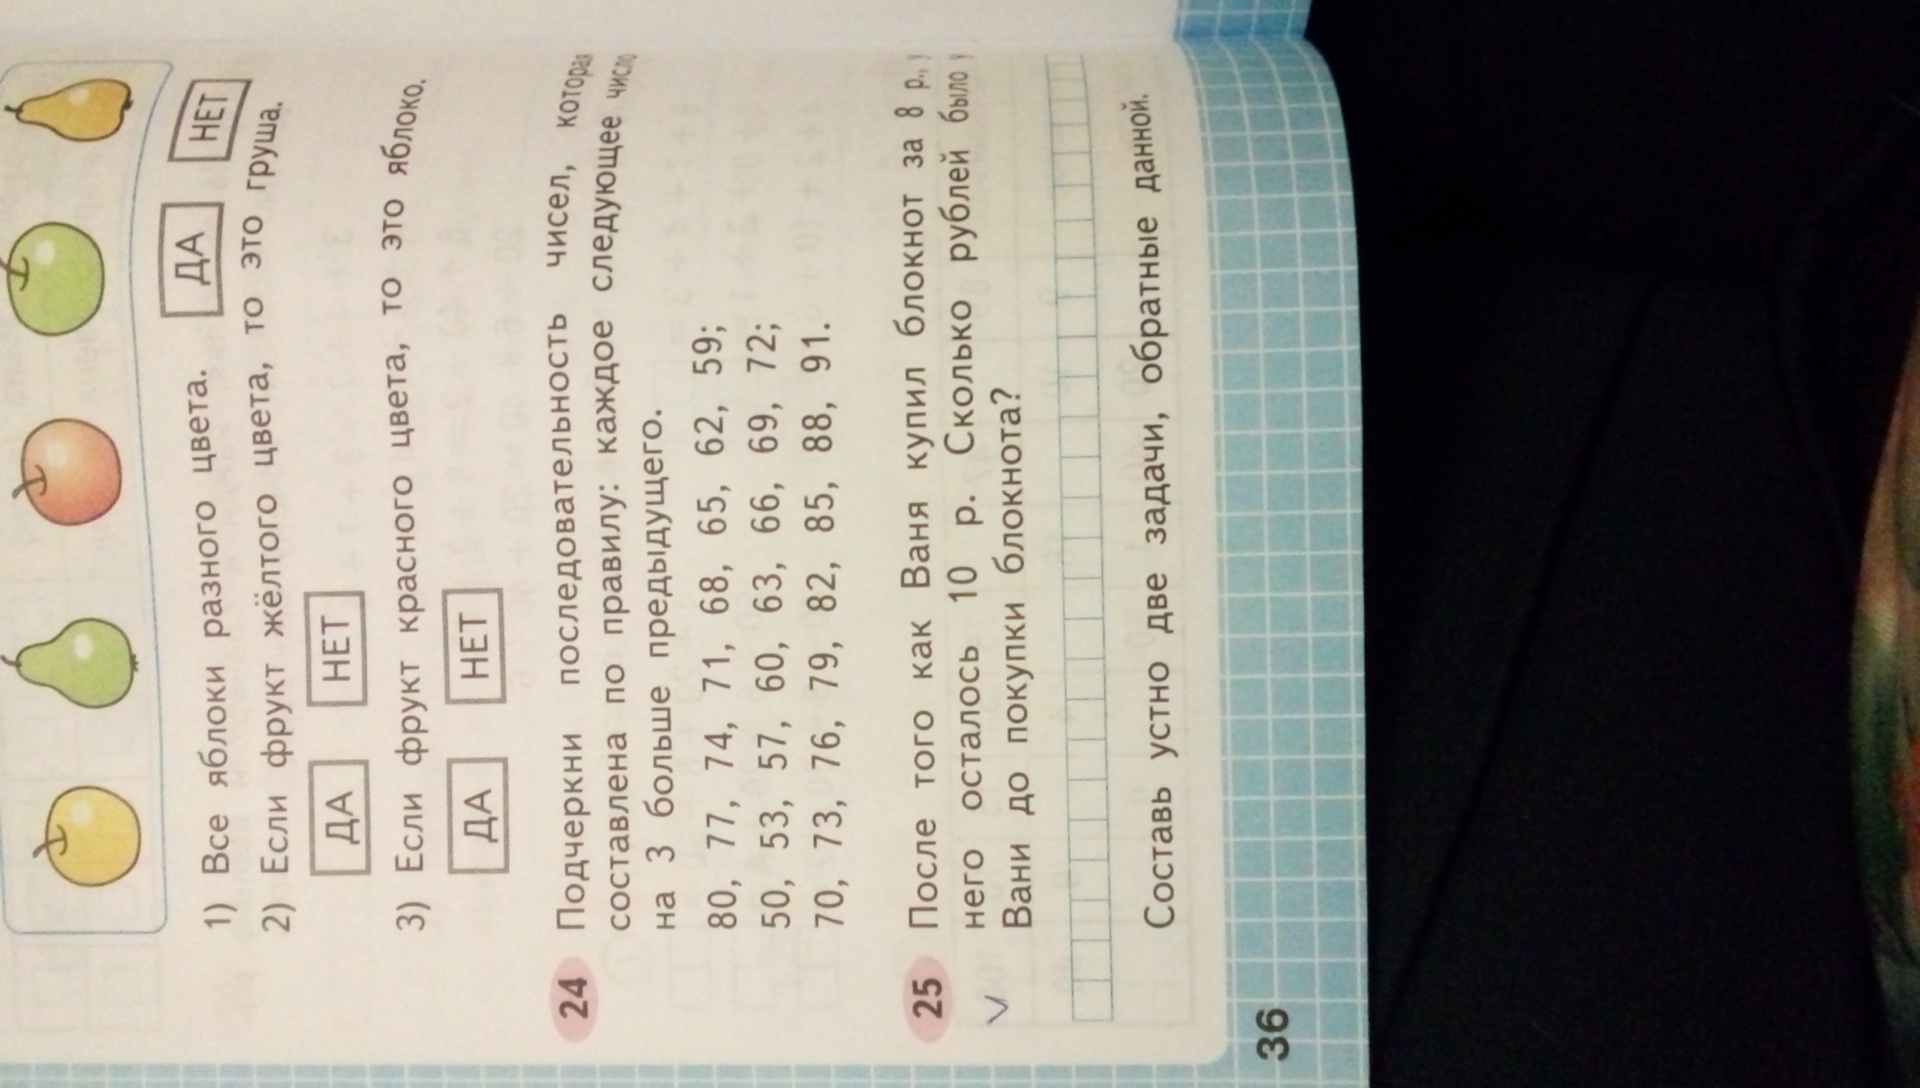 1) Все яблоки разного цвета. ДА НЕТ
2) Если фрукт жёлтого цвета, то это груша.
ДА НЕТ
3) Если фрукт красного цвета, то это яблоко.
ДА НЕТ
24 Подчеркни последовательность чисел, которая
составлена по правилу: каждое следующее число
на 3 больше предыдущего.
80, 77, 74, 71, 68, 65, 62, 59;
50, 53, 57, 60, 63, 66, 69, 72;
70, 73, 76, 79, 82, 85, 88, 91.
25 После того как Ваня купил блокнот за 8 р., у
него осталось 10 р. Сколько рублей было у
Вани до покупки блокнота?
Составь устно две задачи, обратные данной.
36